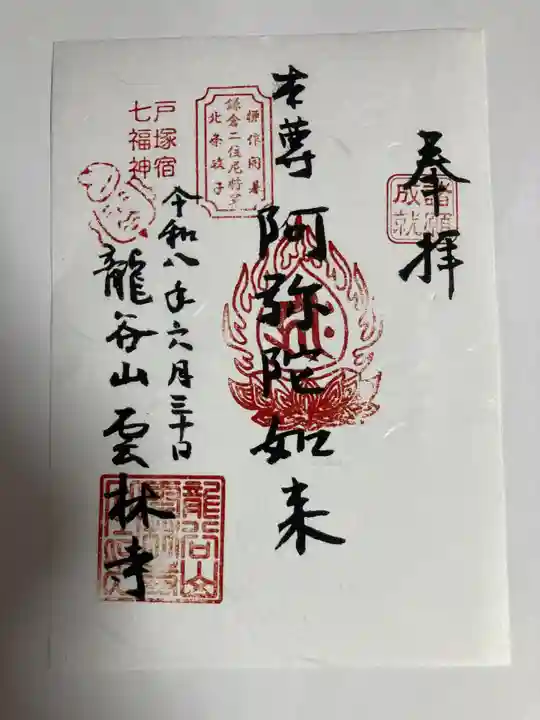 奉拝
諸願
成就
本尊 阿弥陀如来
鎌倉二位尼将軍
北条政子
戸塚宿
七福神
令和八年六月三十日
龍谷山雲林寺
龍谷山